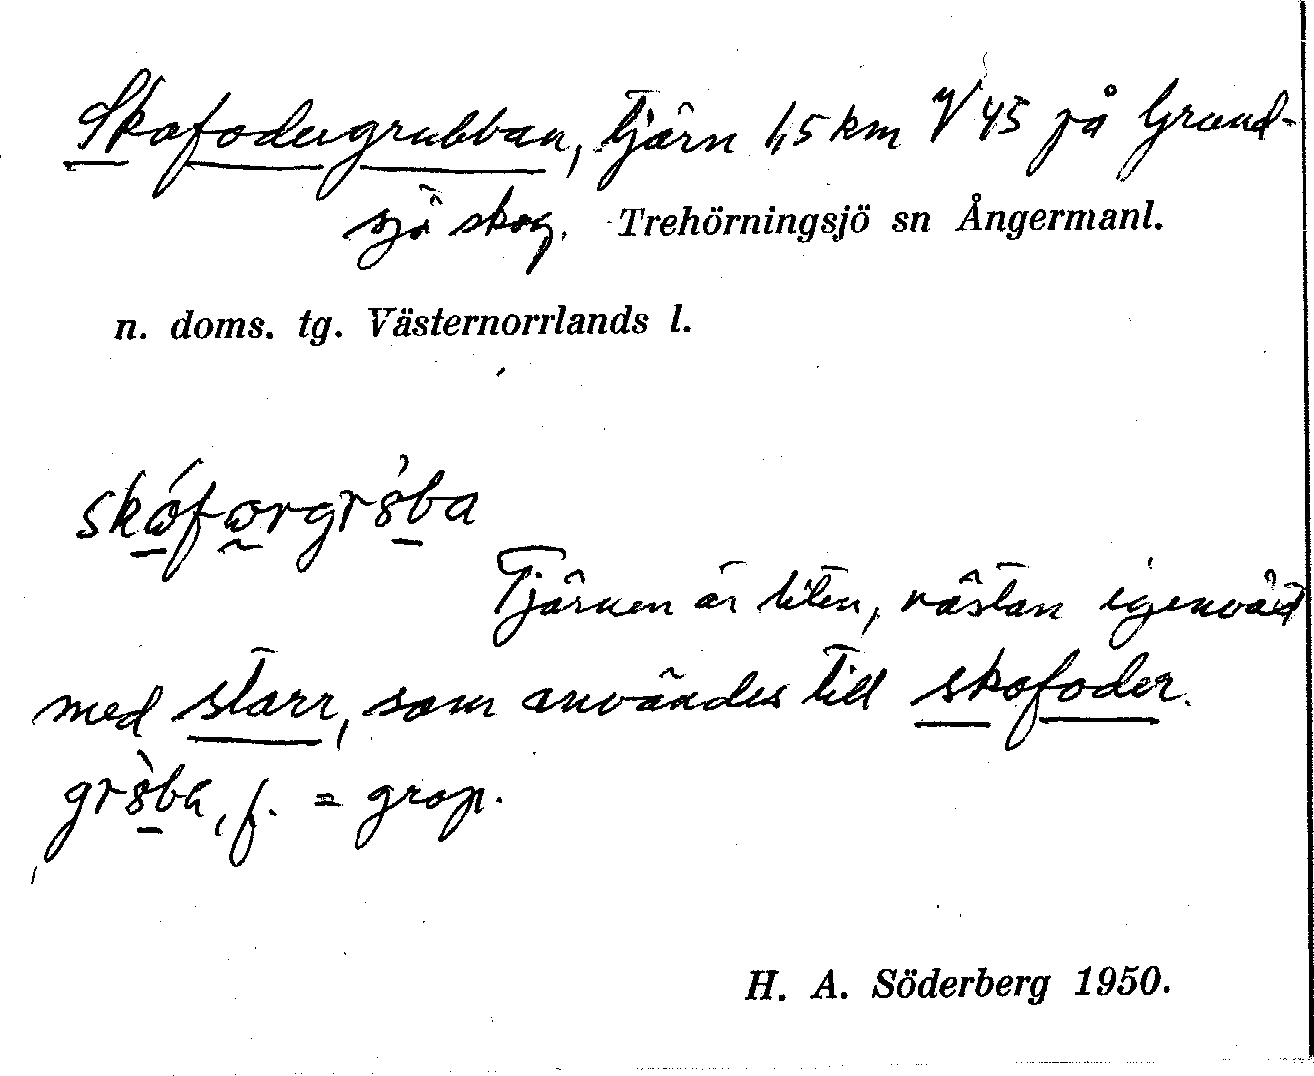 Skofodergrubban, Tjärn 1,5 km V 45 på Grund-
sjö skog. Trehörningsjö sn Ångermanl.
n. doms. tg. Västernorrlands l.
Tjärnen är liten, nästan igenväxt
med starr, som användes till skofoder.
f. = grop.
H. A. Söderberg 1950.